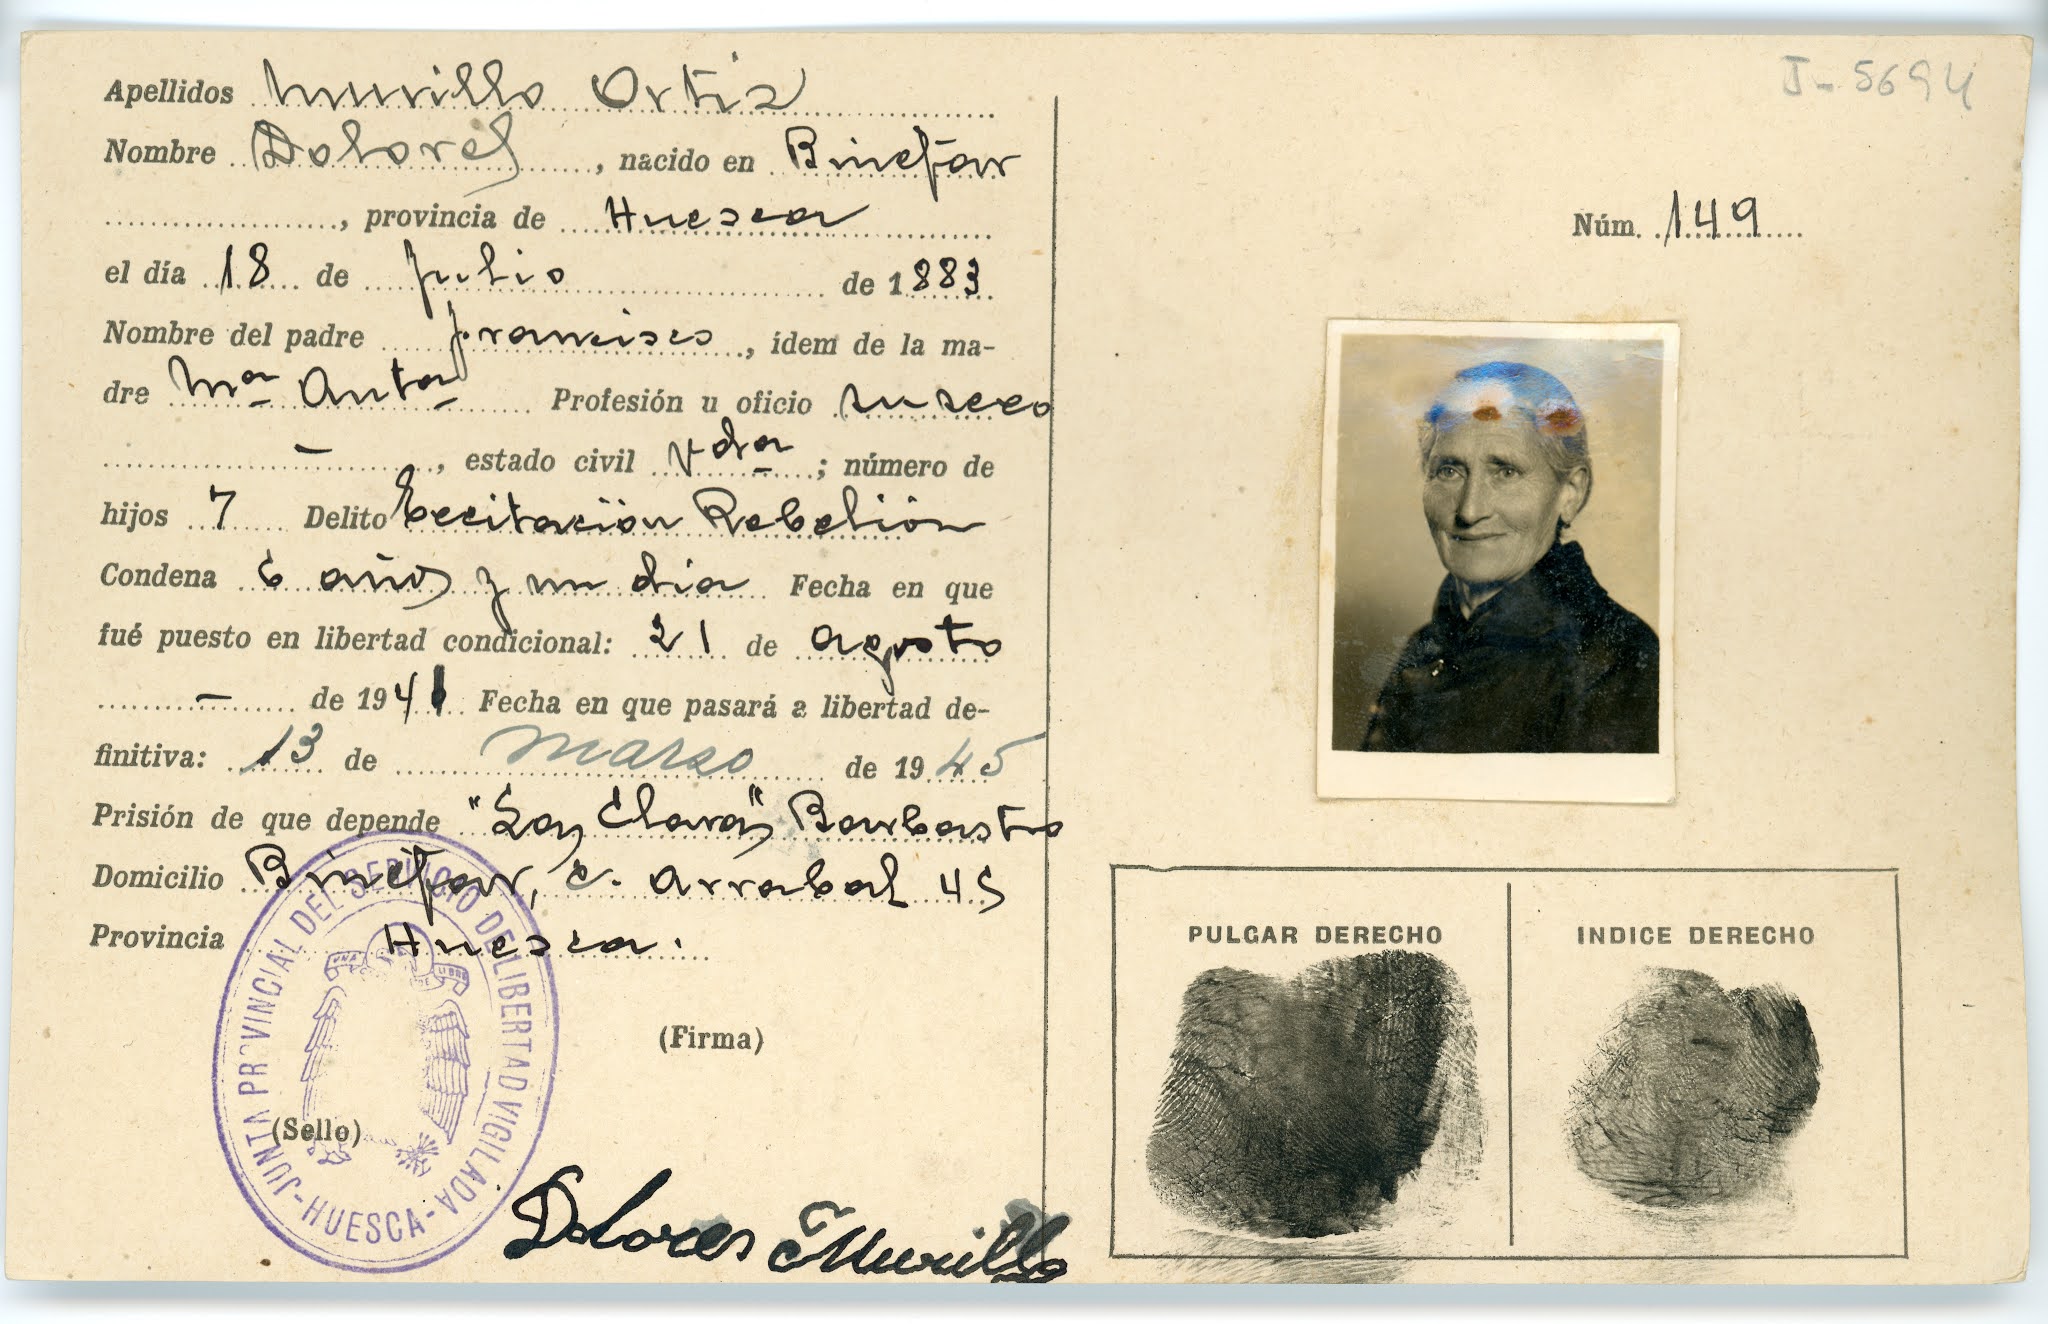 J-5694
Apellidos Murillo Ortiz
Nombre Dolores, nacido en Binefar
, provincia de Huesca
el día 18 de Julio de 1883
Nombre del padre Francisco, ídem de la ma-
dre Mª Antª Profesión u oficio su sexo
-, estado civil Vdª; número de
hijos 7 Delito Excitación Rebelión
Condena 6 años y un dia Fecha en que
fué puesto en libertad condicional: 21 de agosto
- de 1941 Fecha en que pasará a libertad de-
finitiva: 13 de marzo de 1945
Prisión de que depende "Las Claras" Barbastro
Domicilio Binefar, c. Arrabal 45
Provincia Huesca.
(Firma)
(Sello)
JUNTA PROVINCIAL DEL SERVICIO DE LIBERTAD VIGILADA
-HUESCA-
UNA
LIBRE
Dolores Murillo
Núm. 149
PULGAR DERECHO
INDICE DERECHO